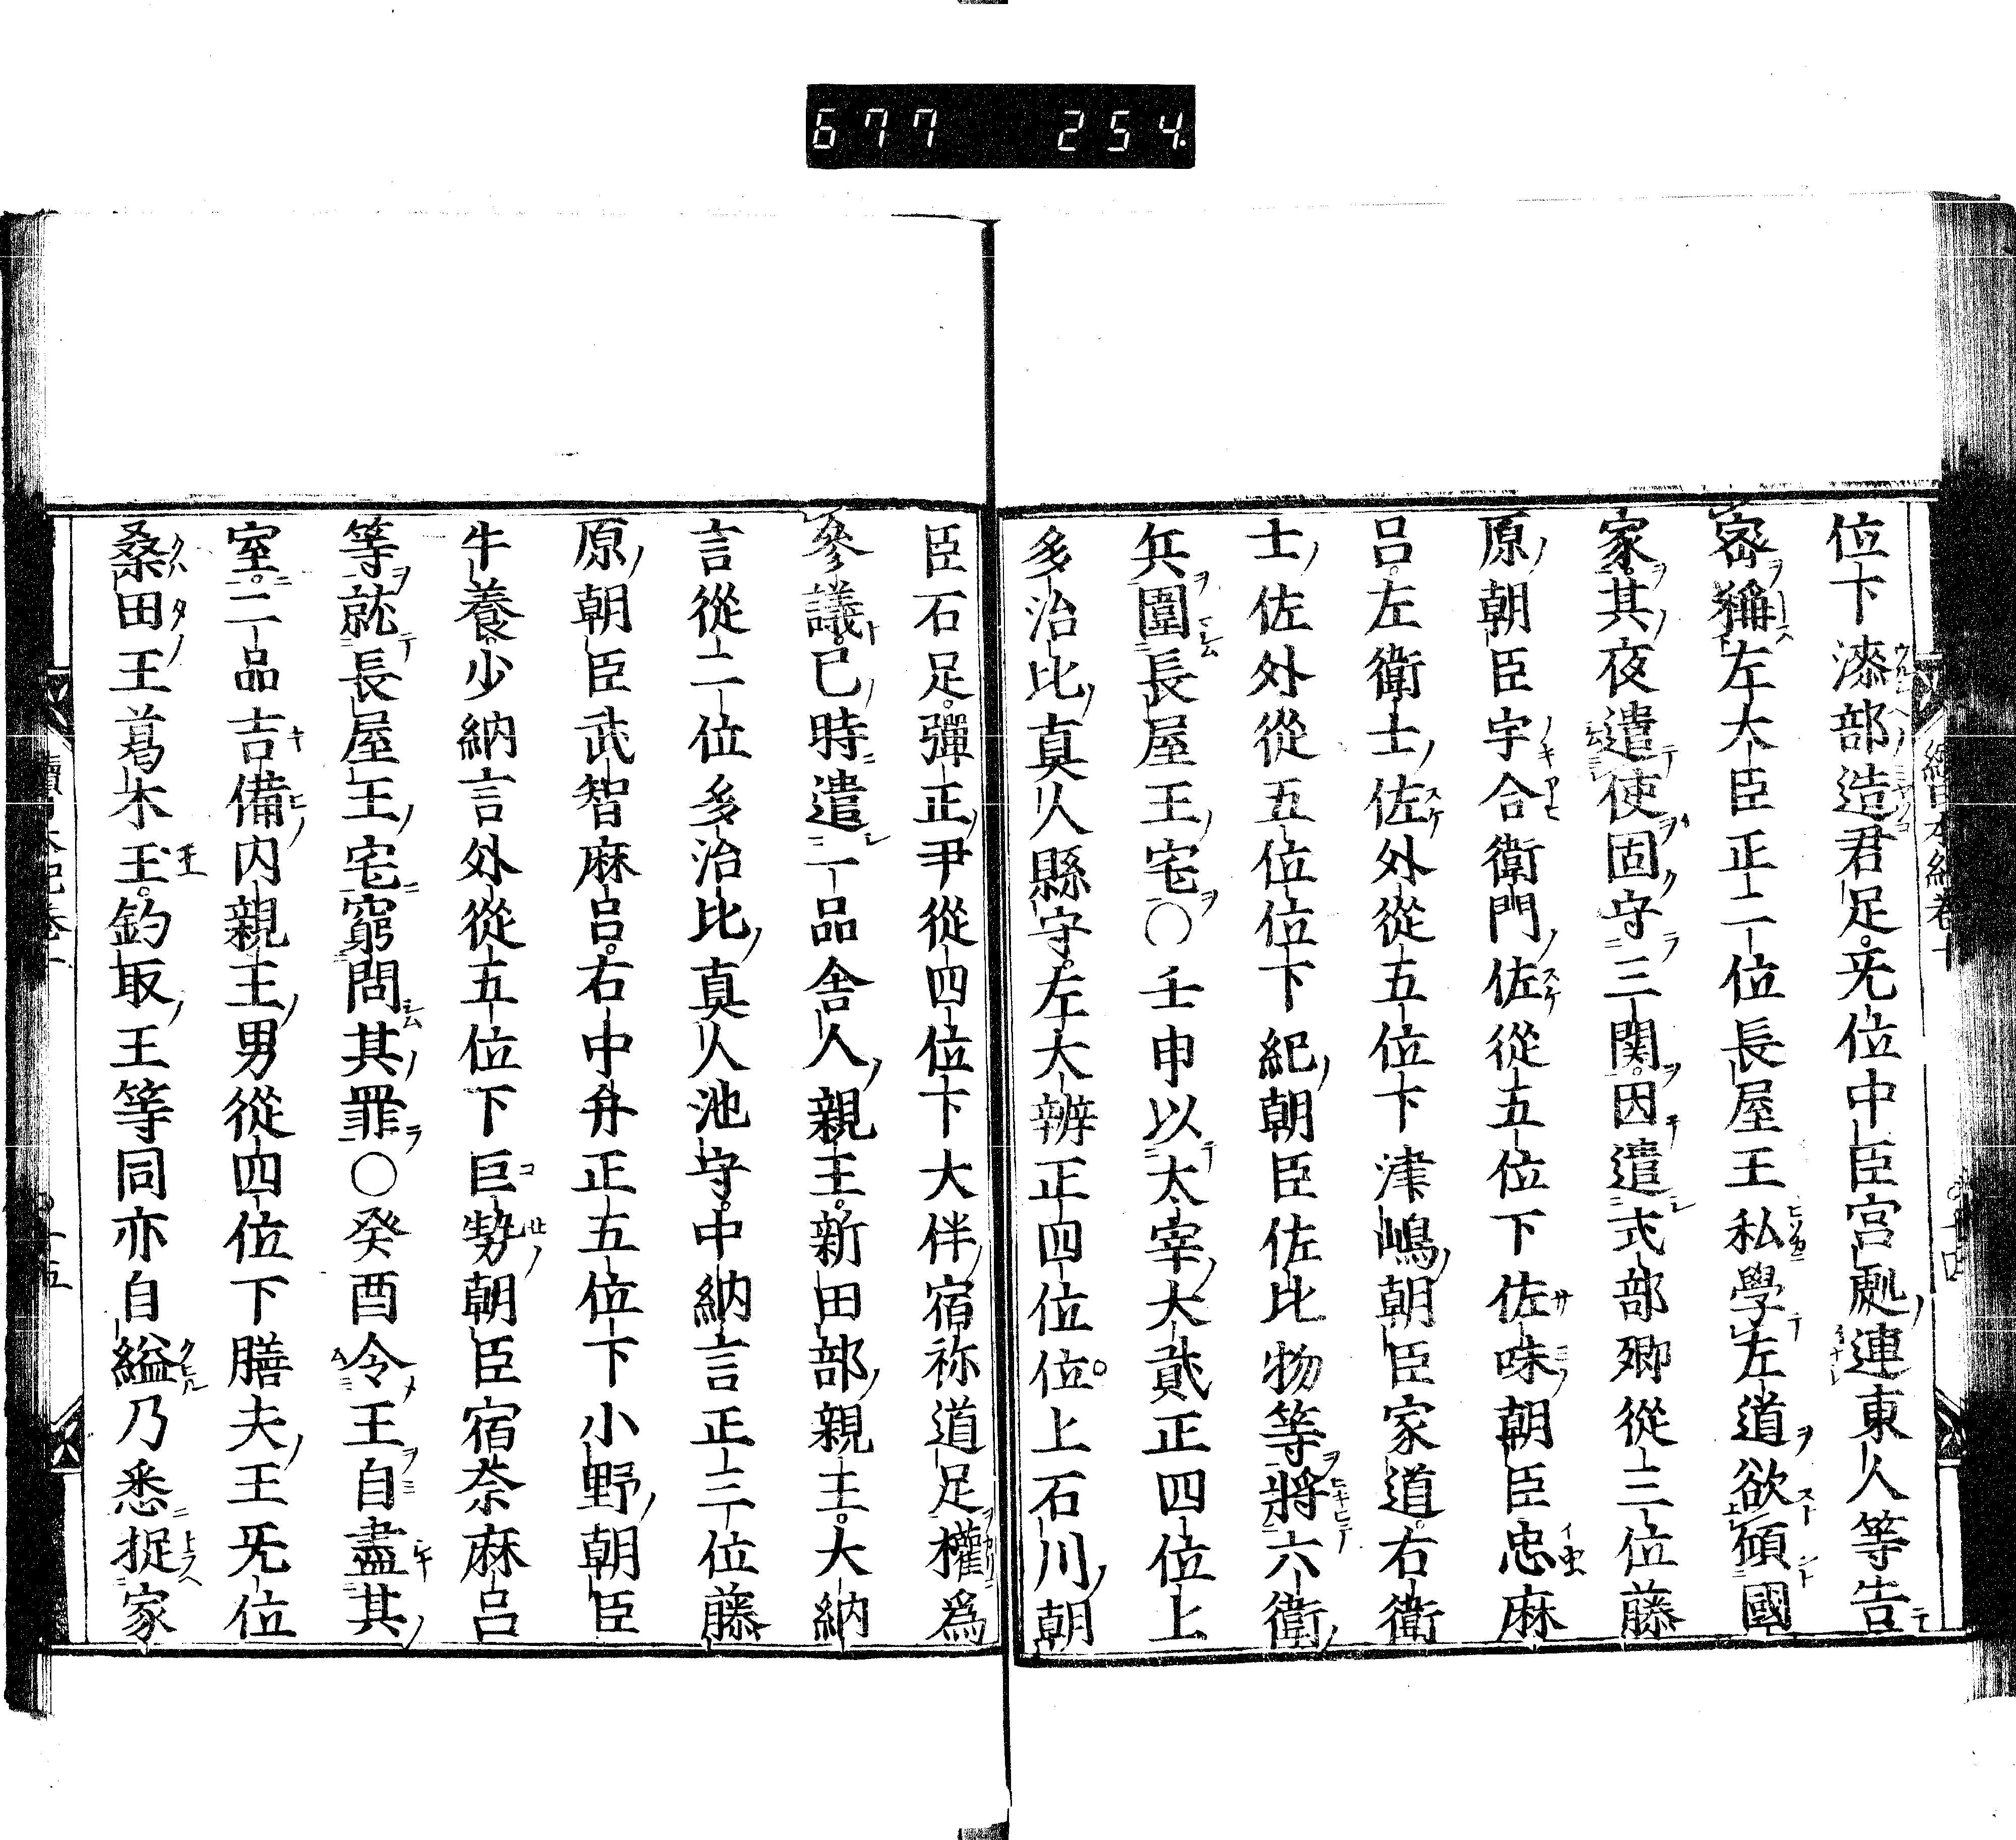 677 254.
位下漆部造君足。无位中臣宮處連東人等告
密稱左大臣正二位長屋王私學左道欲傾國
家。其夜遣使固守三關。因遣式部卿從三位藤
原朝臣宇合衛門佐從五位下佐味朝臣忠麻
呂。左衛士佐外從五位下津嶋朝臣家道。右衛
士佐外從五位位下紀朝臣佐比物等將六衛
兵圍長屋王宅○壬申以太宰大貳正四位上
多治比真人縣守。左大辨正四位位上石川朝
臣石足。彈正尹從四位下大伴宿祢道足權為
參議。已時遣一品舍人親王。新田部親王。大納
言從二位多治比真人池守。中納言正三位藤
原朝臣武智麻呂。右中弁正五位下小野朝臣
牛養少納言外從五位下巨勢朝臣宿奈麻呂
等就長屋王宅窮問其罪○癸酉令王自盡其
室。二品吉備内親王男從四位下膳夫王无位
桑田王葛木王。鈎取王等同亦自縊乃悉捉家